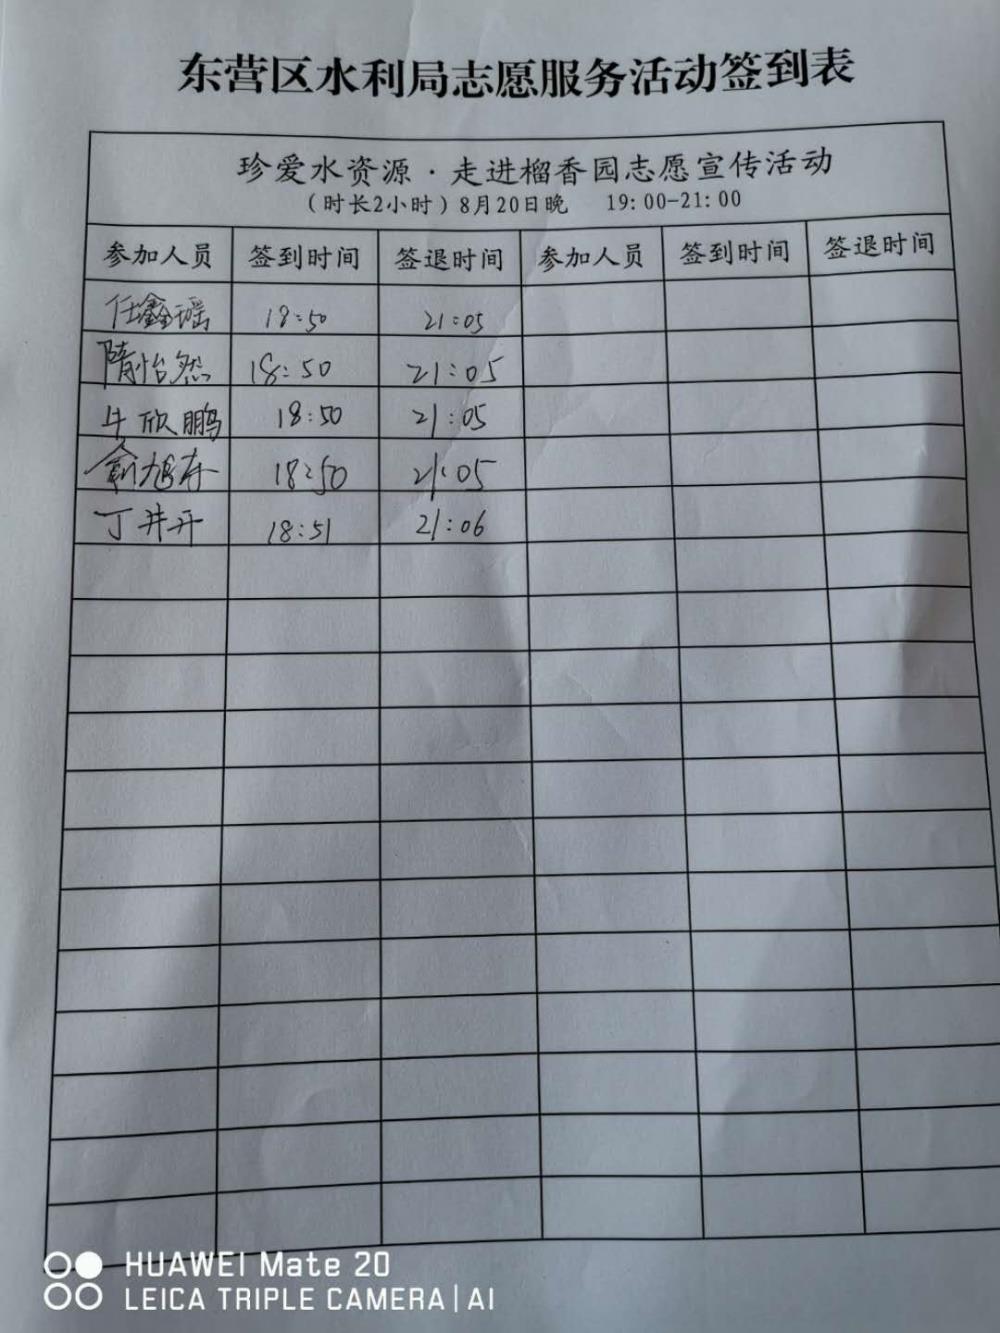 东营区水利局志愿服务活动签到表
珍爱水资源·走进榴香园志愿宣传活动
（时长2小时）8月20日晚 19:00-21:00
参加人员 签到时间 签退时间 参加人员 签到时间 签退时间
任鑫瑶 18:50 21:05
隋怡然 18:50 21:05
牛欣鹏 18:50 21:05
18:50 21:05
丁井开 18:51 21:06
HUAWEI Mate 20
LEICA TRIPLE CAMERA | AI